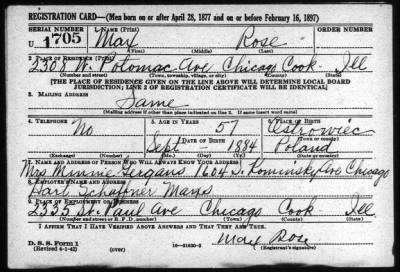 REGISTRATION CARD—(Men born on or after April 28, 1877 and on or before February 16, 1897)
SERIAL NUMBER 1. NAME (Print) ORDER NUMBER
U 1705 Max Rose
(First) (Middle) (Last)
2. PLACE OF RESIDENCE (Print)
2308 W. Potomac Ave Chicago Cook Ill
(Number and street) (Town, township, village, or city) (County) (State)
[THE PLACE OF RESIDENCE GIVEN ON THE LINE ABOVE WILL DETERMINE LOCAL BOARD
JURISDICTION; LINE 2 OF REGISTRATION CERTIFICATE WILL BE IDENTICAL]
3. MAILING ADDRESS
Same
(Mailing address if other than place indicated on line 2. If same insert word same)
4. TELEPHONE 5. AGE IN YEARS 6. PLACE OF BIRTH
No 57 Ostrowiec
DATE OF BIRTH (Town or county)
Sept - 1884 Poland
(Exchange) (Number) (Mo.) (Day) (Yr.) (State or country)
7. NAME AND ADDRESS OF PERSON WHO WILL ALWAYS KNOW YOUR ADDRESS
Mrs Minnie 1604 S. Ave Chicago
8. EMPLOYER'S NAME AND ADDRESS
Hart Schaffner Marx
9. PLACE OF EMPLOYMENT OR BUSINESS
2335 St. Paul Ave Chicago Cook Ill
(Number and street or R. F. D. number) (Town) (County) (State)
I AFFIRM THAT I HAVE VERIFIED ABOVE ANSWERS AND THAT THEY ARE TRUE.
D. S. S. Form 1
(Revised 4-1-42) (over) Max Rose
(Registrant's signature)